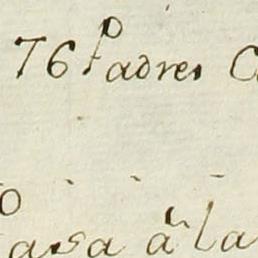 76 Padres
Pasa à la